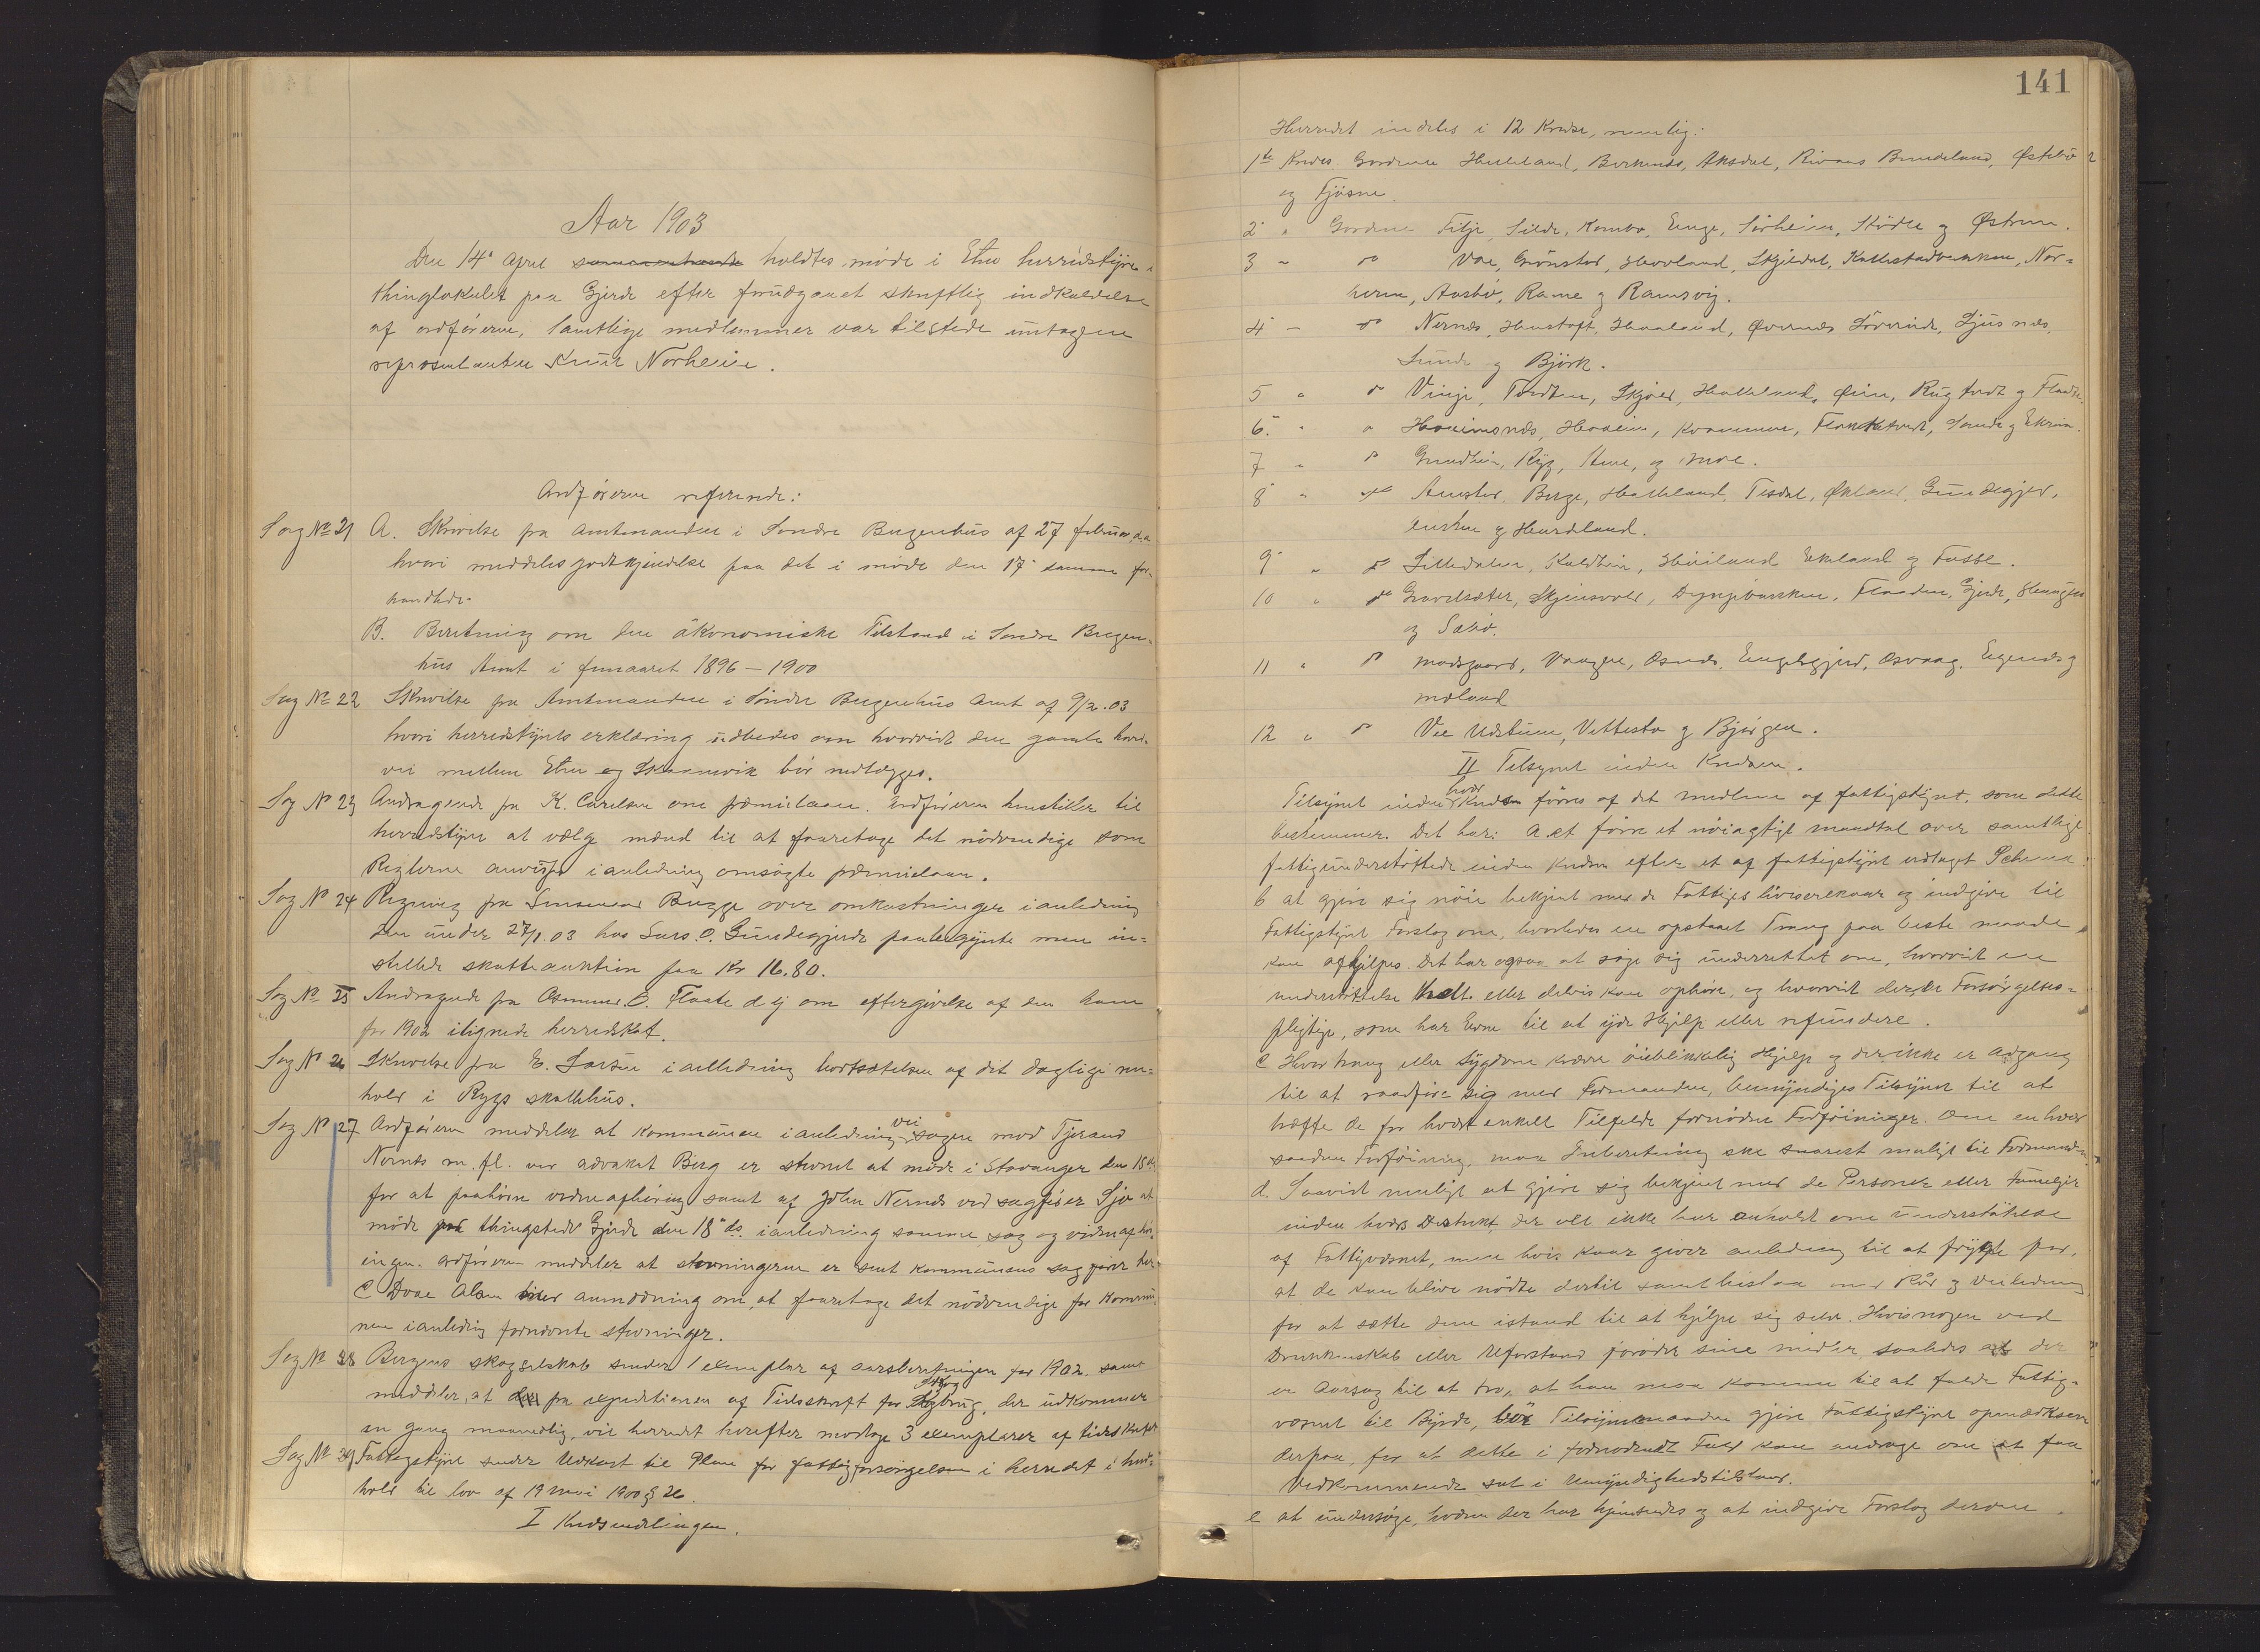 Aar 1903
Den 14de April holdtes møde i Etne herredstyre i
thinglokalet paa Gjerde efter forudgaaet skriftlig indkaldelse
af ordføreren, samtlige medlemmer var tilstede untagen
representanten Knut Norheim.
Ordføreren refererede:
Sag No 21 A. Skrivelse fra Amtmanden i Søndre Bergenhus af 27 februar d.a.
hvori meddeles godkjendelse paa det i møde den 17de samme for-
handlede.
B. Beretning om den økonomiske Tilstand i Søndre Bergen-
hus Amt i femaaret 1896 – 1900
Sag No 22 Skrivelse fra Amtmanden i Søndre Bergenhus Amt af 9/2.03
hvori herredstyrets erklæring udbedes om hvorvidt den gamle hoved-
vei mellem Etne og Skaanevik bør nedlægges.
Sag No 23 Andragende fra K. Carlsen om præmielaan. Ordføreren henstiller til
herredstyre at vælge mænd til at foaretage det nødvendige som
Reglerne anviser i anledning omsøgte præmielaan.
Sag No 24 Regning fra Lensmand Bugge over omkostninger i anledning
den under 27/1.03 hos Lars O. Grindegjerde paabegynte men in-
stillede skatteauktion paa Kr 16.80.
Sag No 25 Andragende fra Osmund O. Flaate d.y om eftergivelse af den ham
for 1902 ilignede herredskat.
Sag No 26 Skrivelse fra E. Larsen i anledning bortsættelsen af det daglige ren-
hold i Rygs skolehus.
Sag No 27 Ordføreren meddeler at kommunen i anledning vei sagen mod Tjerand
Nernes m.fl. ver advokat Berg er stevnet at møde i Stavanger den 15de
for at paahøre vidneafhøring samt af John Nernes ved sagfører Sjo at
møde paa thingstedet Gjerde den 18de ds. i anledning samme sag og vidneafhø-
ingen. Ordføreren meddeler at stevningerne er sent kommunens sagfører her
C Dvae Olsen med anmodning om, at foaretage det nødvendige for kommu-
nen i anledning fornævnte stevninger.
Sag No 28 Bergens skogselskab sender 1 exemplar af aarsberetningen for 1902. samt
meddeler, at fra expeditionen af Tidsskrift for Skogbrug, der udkommer
en gang maanedlig, vil herredet herefter modtage 3 exemplarer af tidsskriftet
Sag No 29 Fattigstyret sender Udkast til Plan for fattigforsørgelsen i herredet i hen-
hold til lov af 19 mai 1900 § 26.
I Kredsinddelingen.
141
Herredet inddeles i 12 Kredse, nemlig:
1ste Kreds. Gardene Helleland, Birkenes, Aksdal, Rivans Bruneland, Østebø
og Fjøsne.
2 " Gardene Tilje, Silde, Kambo, Enge, Sørheim, Stødle og Østrem.
3 " do Vae, Grønstad, Hovland, Skjeldal, Kallestadbakken, Nor-
heim, Aasbø, Rame og Ramsvig.
4 – do Nernes, Henstoft, Haaland, Øvernes Løvereide, Ljusnes,
Lunde og Bjørk.
5 " do Vinje, Tordten, Skjold, Helleland, Øien, Rygtvedt og Flaate.
6. " do Haaimsnes, Haaeim, Kvammen, Flokketvedt, Sande og Ekrene.
7 " do Grindheim, Ryg, Stene, og Moe.
8 " do Austad, Berge, Helleland, Tesdal, Økland, Grindegjerd,
Lensken og Hardeland.
9 " do Litledalen, Kaldheim, Høiland Ekeland og Fosse.
10 " do Gravelsæter, Skjensvold, Dyngebakken, Flaaden, Gjerde, Haugen
og Sæbø.
11 " do Modsgaard, Vaagen, Osnes, Engelsgjerd, Osvaag, Egenes og
Mæland
12 " do Vee Udstuen, Vettestø og Bjørgen.
II Tilsynet inden Kredsen.
Tilsynet inden hver Kreds føres af det medlem af fattigstyret, som dette
bestemmer. Det har: A at føre et nøiagtigt mandtal over samtlige
fattigunderstøttede inden Kredsen efter et af fattigstyret udtaget Schema
b at gjøre sig nøie bekjent med de Fattiges livsvilkaar og indgive til
Fattigstyret Forslag om, hvorledes en opstaaet Trang paa beste maade
kan afhjelpes. Det har ogsaa at søge sig underrettet om, hvorvidt en
understøttelse helt eller delvis kan ophøre, og hvorvidt der er Forsørgelses-
pligtige, som har Evne til at yde Hjelp eller refundere.
C Hvor trang eller Sygdom kræver øieblikkelig Hjelp og der ikke er Adgang
til at raadføre sig med Formanden, bemyndiges Tilsynet til at
træffe de for hvert enkelt Tilfælde fornødne Forføininger. Om enhver
saadan Forføining, maa Indberetning ske snarest muligt til Formanden.
d. Saavidt muligt at gjøre sig bekjent med de Personer eller Familier
inden hvers Distrikt der vel ikke har anholdt om Understøttelse
af Fattigvæsnet, men hvis kaar giver anledning til at frygte for,
at de kan blive nødte dertil samt bistaa med Råd og Veiledning
for at sætte dem istand til at hjelpe sig selv. Hvis nogen ved
Drukkenskab eller Uforstand forøder sine midler saaledes at der
er Aarsag til at tro, at han maa komme til at falde Fattig-
væsnet til Byrde, bør Tilsynsmanden gjøre Fattigstyret opmærksom
derpaa, for at dette i fornødent Fald kan andrage om at faa
Vedkommende sat i Umyndighedstilstand.
e at undersøge, hvem der har hjemsteds og at indgive Forslag derom